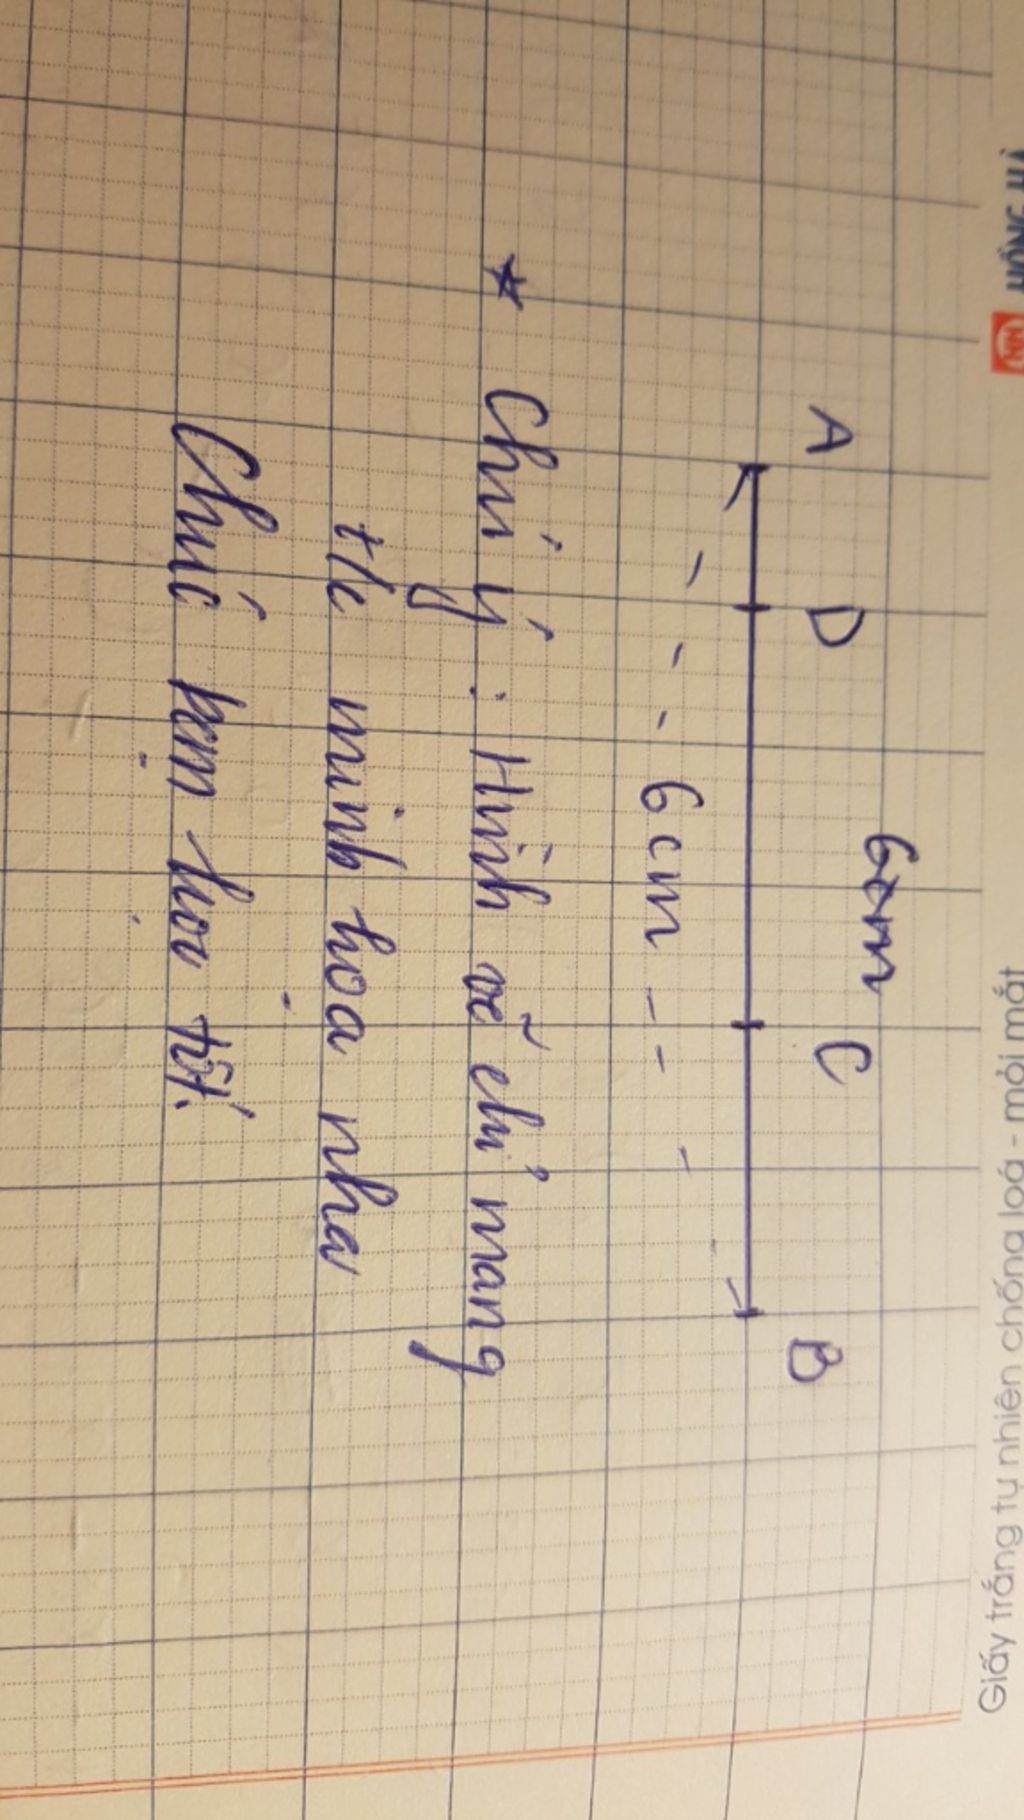 HỒNG HÀ
Giấy trắng tự nhiên chống loá - mỏi mắt
6cm
A D C B
6cm
* Chú ý : Hình vẽ chỉ mang
t/c minh hoạ nha
Chúc bạn học tốt.